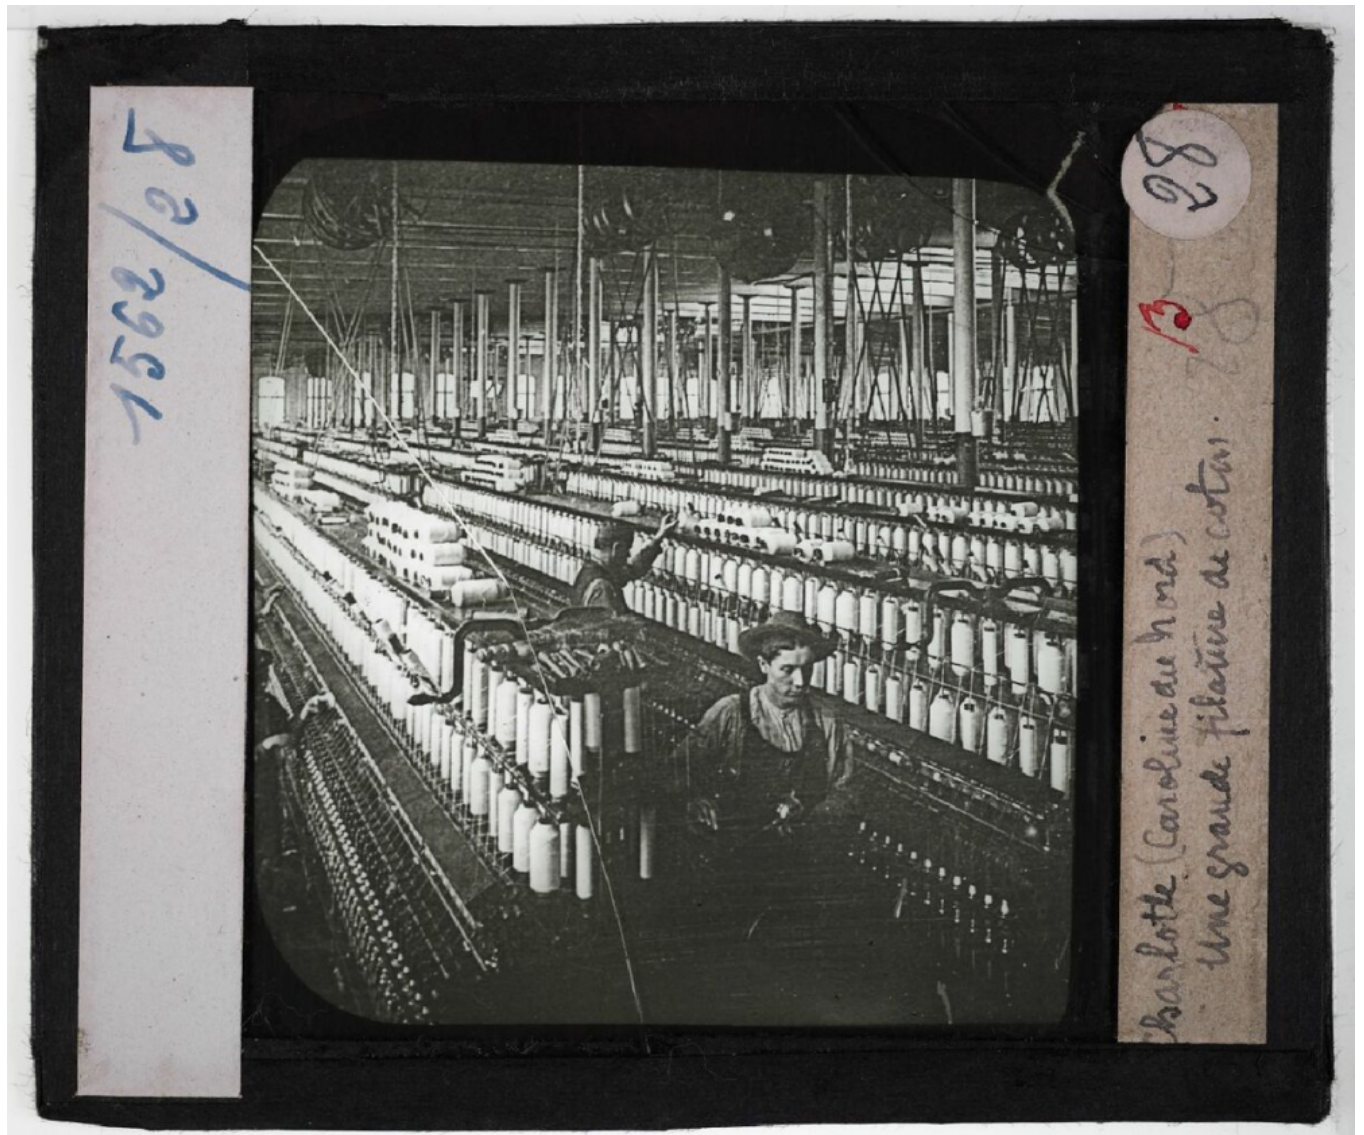 1562/28
28
13
28
Charlotte (Caroline du Nord)
Une grande filature de coton.